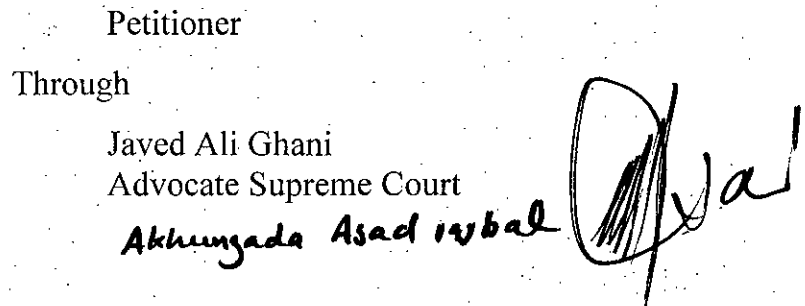 Petitioner
Through
Javed Ali Ghani
Advocate Supreme Court
Akhungada Asad iqbal